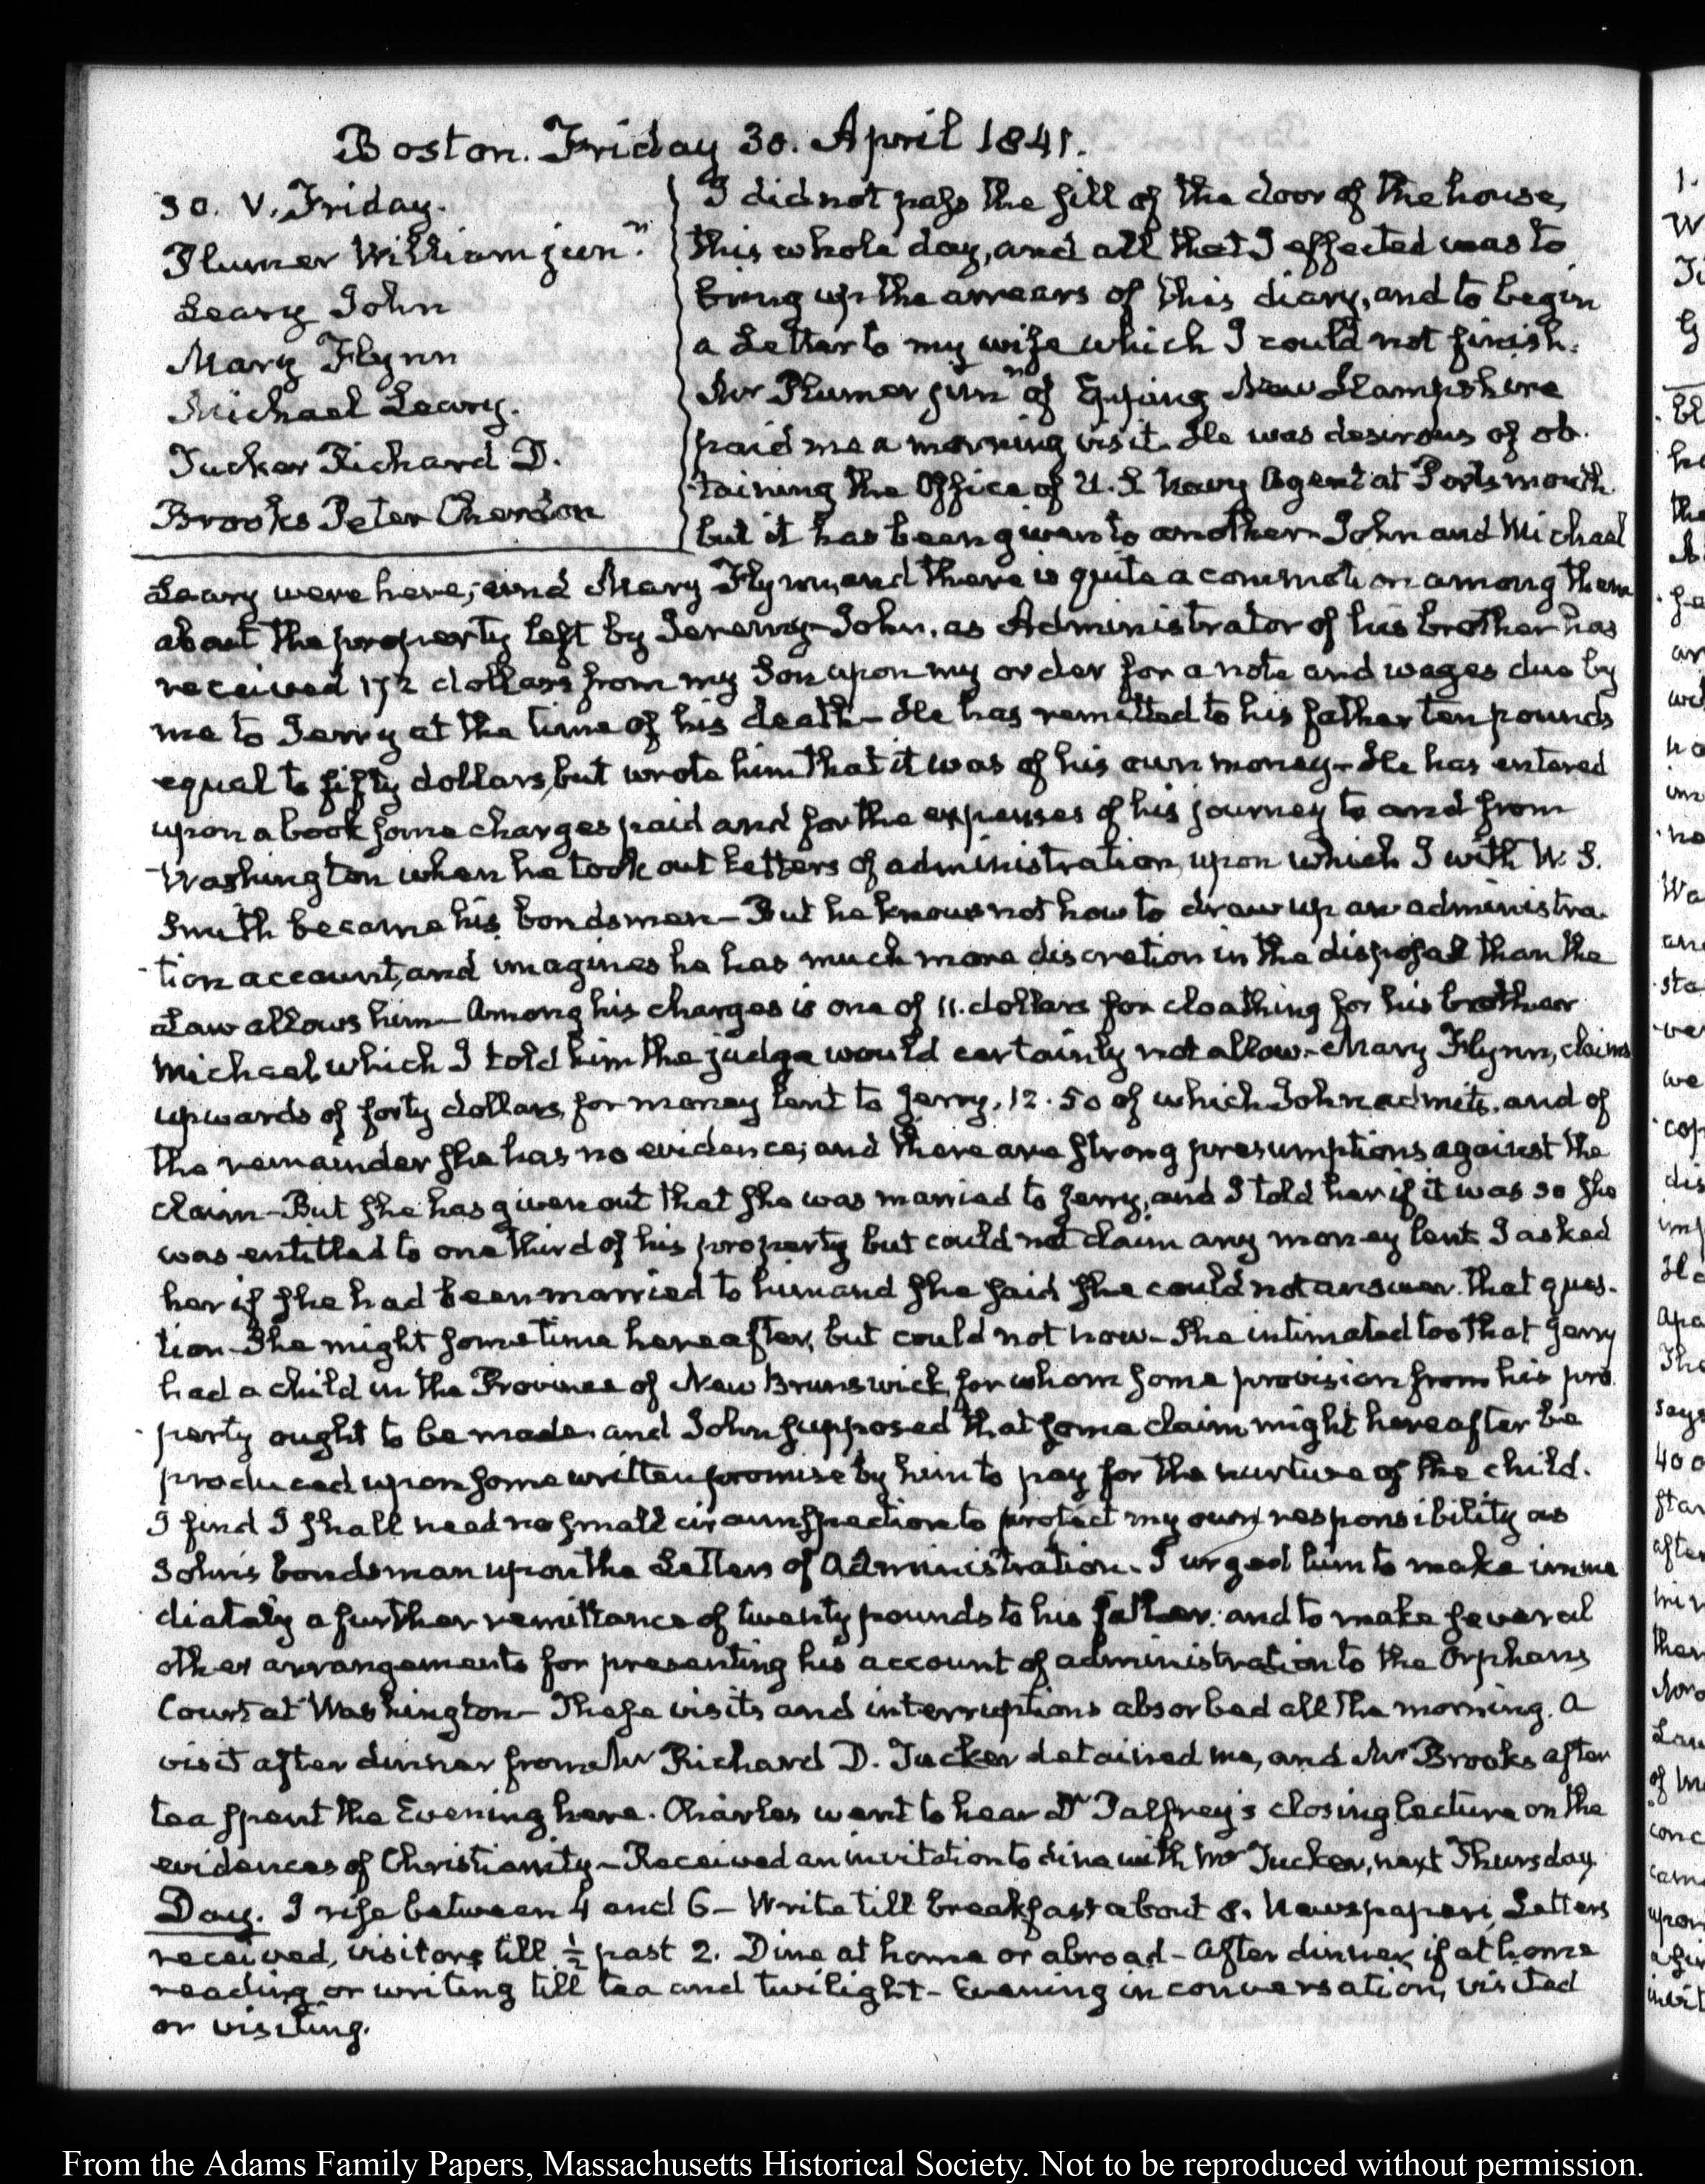 Boston. Friday 30. April 1841.
30. V. Friday.
Plumer William jun.r
Leary John
Mary Flynn
Michael Leary.
Tucker Richard D.
Brooks Peter Chardon
I did not pass the sill of the door of the house,
this whole day, and all that I effected was to
bring up the arrears of this diary, and to begin
a Letter to my wife which I could not finish.
Mr Plumer junr of Epping New Hampshire
paid me a morning visit. He was desirous of ob-
taining the Office of U.S. Navy Agent at Portsmouth
but it has been given to another. John and Michael
Leary were here; and Mary Flynn, and there is quite a commotion among them
about the property left by Jeremy. John, as Administrator of his brother has
received 172 dollars from my Son upon my order for a note and wages due by
me to Jerry at the time of his death— He has remitted to his father ten pounds
equal to fifty dollars, but wrote him that it was of his own money— He has entered
upon a book some charges paid and for the expenses of his journey to and from
Washington when he took out Letters of administration, upon which I with W. S.
Smith became his bondsmen— But he knows not how to draw up an administra-
tion account, and imagines he has much more discretion in the disposal than the
Law allows him— Among his charges is one of 11. dollars for cloathing for his brother
Michael, which I told him the judge would certainly not allow— Mary Flynn, claims
upwards of forty dollars, for money lent to Jerry, 12.50 of which John admits, and of
the remainder she has no evidence; and there are strong presumptions against the
claim— But she has given out that she was married to Jerry, and I told her if it was so she
was entitled to one third of his property but could not claim any money lent. I asked
her if she had been married to him and she said she could not answer that ques-
tion. She might some time hereafter, but could not now— She intimated too that Jerry
had a child in the Province of New Brunswick, for whom some provision from his pro-
perty ought to be made. and John supposed that some claim might hereafter be
produced upon some written promise by him to pay for the nurture of the child.
I find I shall need no small circumspection to protect my own responsibility as
John's bondsman upon the Letters of Administration. I urged him to make imme
diately a further remittance of twenty pounds to his father: and to make several
other arrangements for presenting his account of administration to the Orphans
Court at Washington— These visits and interruptions absorbed all the morning. A
visit after dinner from Mr Richard D. Tucker detained me, and Mr Brooks after
tea spent the Evening here. Charles went to hear Dr Palfrey's closing lecture on the
evidences of Christianity— Received an invitation to dine with Mr Tucker, next Thursday
Day. I rise between 4 and 6— Write till breakfast about 8. Newspapers, Letters
received, visitors till ½ past 2. Dine at home or abroad— After dinner, if at home
reading or writing till tea and twilight— Evening in conversation, visited
or visiting.
From the Adams Family Papers, Massachusetts Historical Society. Not to be reproduced without permission.